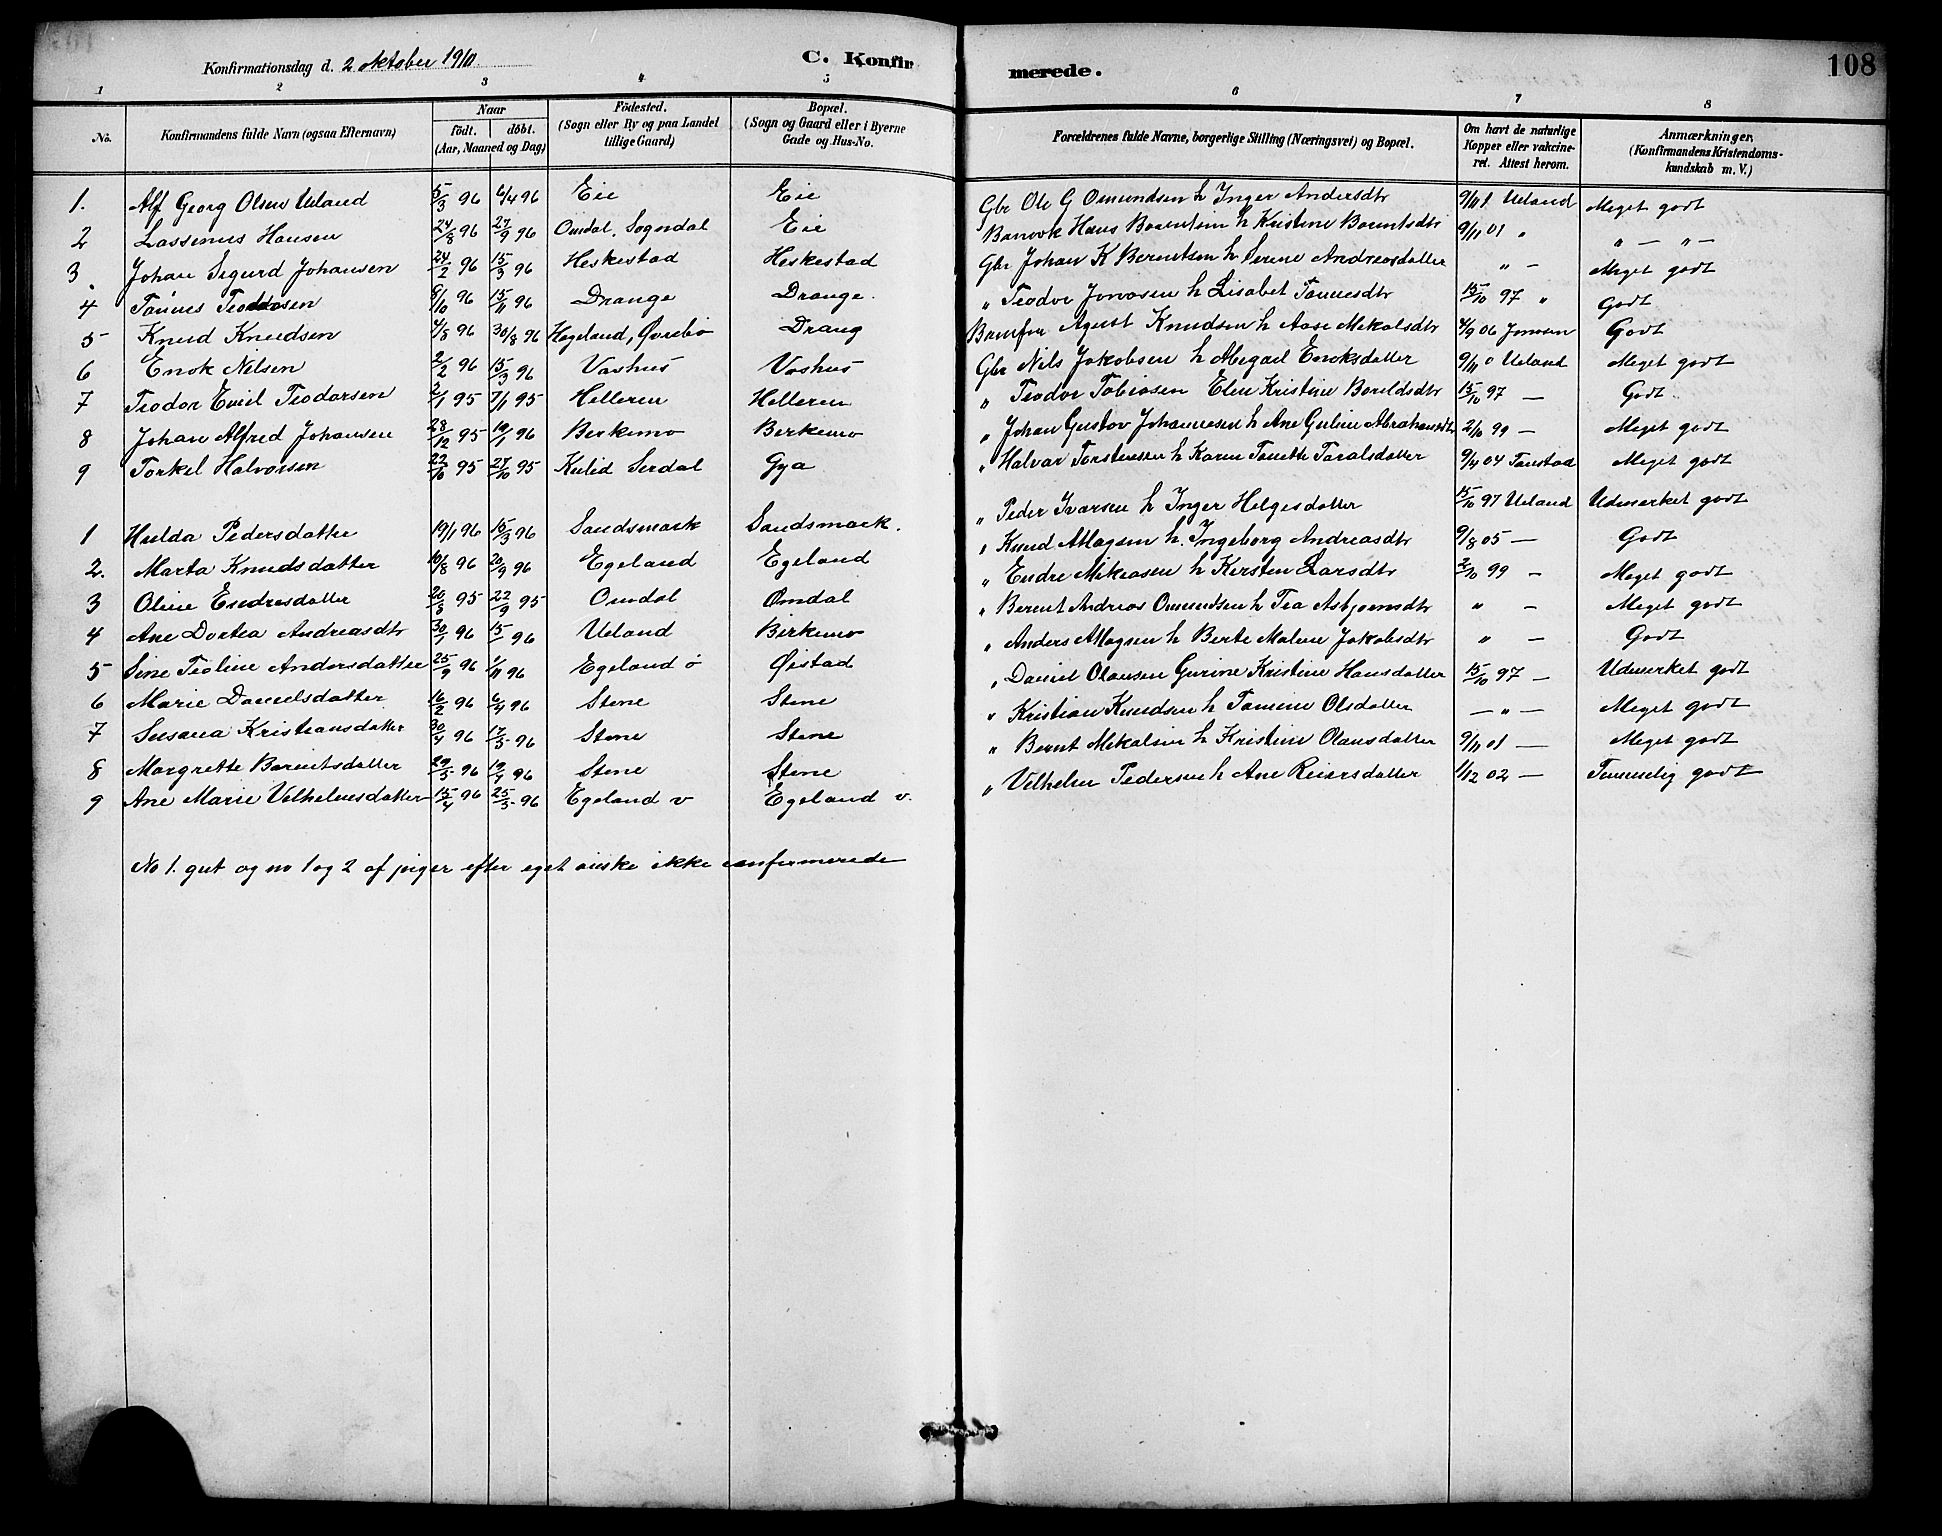 Konfirmationsdag d. 2 oktober 1910
C. Konfirmerede.
108
1 2 3 4 5 6 7 8
No. Konfirmandens fulde Navn (ogsaa Efternavn) Naar født. døbt. (Aar, Maaned og Dag) Födested. (Sogn eller By og paa Landet tillige Gaard) Bopæl. (Sogn og Gaard eller i Byerne Gade og Hus-No. Forældrenes fulde Navne, borgerlige Stilling (Næringsvei) og Bopæl. Om havt de naturlige Kopper eller vakcineret. Attest herom. Anmærkninger. (Konfirmandens Kristendomskundskab m. V.)
1. Alf Georg Olsen Ueland 5/3 96 6/4 96 Eie Eie Gbr Ole G Omundsen h Inger Andersdtr 9/11 1 Ueland Meget godt
2 Lassenus Hansen 24/8 96 27/9 96 Omdal, Sogndal Eie Hans Berentsen h Kristine Berntsdtr 9/11 01 " " — " —
3. Johan Sigurd Johansen 24/2 96 15/3 96 Heskestad Heskestad Gbr Johan K Berntsen h Serine Andreasdatter " — Meget godt
4 Tønnes Teodorsen 8/10 96 15/11 96 Drange Drange. " Teodor Jonasen h Lisabet Tønnesdtr 15/10 97 " Godt
5 Knud Knudsen 4/8 96 30/8 96 Hageland, Øvrebø Drang Agust Knudsen h Aase Mekalsdtr 4/9 06 Jonsen Godt
6 Enok Nilsen 2/2 96 15/3 96 Vashus Vashus Gbr Nils Jakobsen h Abegael Enoksdatter 9/11 0 Ueland Meget godt
7 Teodor Emil Teodorsen 2/1 95 7/11 95 Helleren Helleren " Teodor Tobiasen Elen Kristine Bareldsdtr 15/10 97 — Godt
8 Johan Alfred Johansen 28/12 95 19/1 96 Berkemo Berkemo " Johan Gustav Johannesen h Ane Guline Abrahamsdtr 2/10 99 — Meget godt
9 Torkel Halvorsen 22/10 95 27/10 95 Kvlid Serdal Gya " Halvar Torstensen h Karen Tonette Taralsdatter 9/4 04 Tonstad Meget godt
1 Hulda Pedersdatter 19/1 96 15/3 96 Sandsmark Sandsmark. " Peder Ivarsen h Inger Helgesdatter 15/10 97 Ueland Udmerket godt
2. Marta Knudsdatter 10/8 96 20/9 96 Egeland Egeland " Knud Magsen h. Ingeborg Andreasdtr 9/8 05 — Godt
3 Oline Endresdatter 20/8 95 22/9 95 Omdal Omdal " Endre Mikeasen h Kersten Larsdtr 2/10 99 — Meget godt
4 Ane Dortea Andreasdtr 30/1 96 15/ 96 Ueland Birkemo " Bernt Andreas Omundsen h Tea Asbjørnsdtr " — Meget godt
5 Sine Teoline Andersdatter 25/9 96 1/11 96 Egeland ø Øistad " Anders Magsen h Berte Malene Jakobsdtr " — Godt
6 Marie Danielsdatter 16/2 96 6/4 96 Stene Stene " Daniel Olausen Gurine Kristine Hansdatter 15/10 97 — Udmerket godt
7 Susana Kristiansdatter 30/4 96 17/5 96 Stene Stene " Kristian Knudsen h Tomine Olsdatter — " — Meget godt
8 Margrette Berntsdatter 29/5 96 19/7 96 Stene Stene " Bernt Mekalsen h Kristine Olausdatter 9/11 01 — Meget godt
9 Ane Marie Velhelmsdatter 15/4 96 25/5 96 Egeland v Egeland v. " Velhelm Pedersen h Ane Reiersdatter 1/12 02 — Temmelig godt
No 1. gut og no 1 og 2 af piger efter eget ønske ikke confirmerede